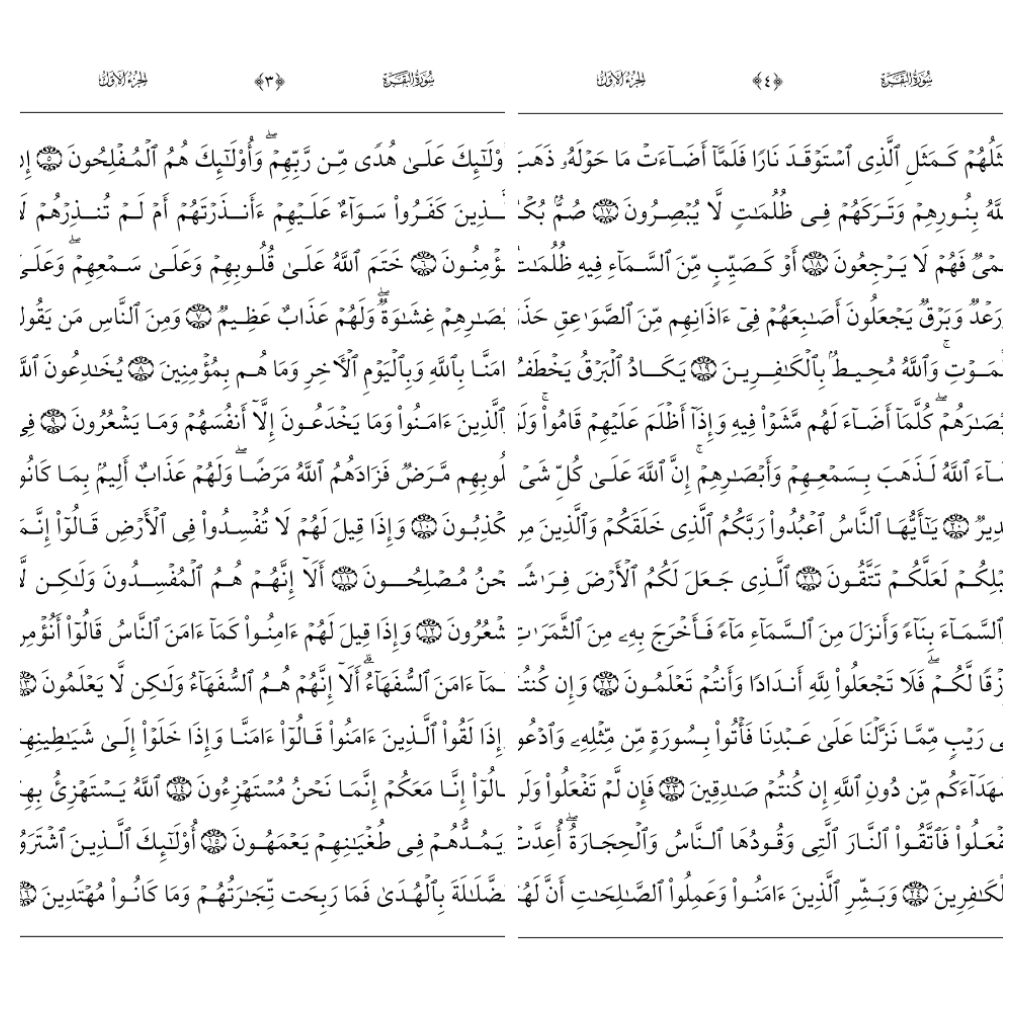 سُورَةُ البَقَرَةِ ﴿٣﴾ الجُزءُ الأوّلُ
وْلَٰٓئِكَ عَلَىٰ هُدًى مِّن رَّبِّهِمْۖ وَأُوْلَٰٓئِكَ هُمُ ٱلْمُفْلِحُونَ ٥ إِن
لَّذِينَ كَفَرُواْ سَوَآءٌ عَلَيْهِمْ ءَأَنذَرْتَهُمْ أَمْ لَمْ تُنذِرْهُمْ لَا
ؤْمِنُونَ ٦ خَتَمَ ٱللَّهُ عَلَىٰ قُلُوبِهِمْ وَعَلَىٰ سَمْعِهِمْۖ وَعَلَىٰ
بْصَٰرِهِمْ غِشَٰوَةٌۖ وَلَهُمْ عَذَابٌ عَظِيمٌ ٧ وَمِنَ ٱلنَّاسِ مَن يَقُول
امَنَّا بِٱللَّهِ وَبِٱلْيَوْمِ ٱلْأٓخِرِ وَمَا هُم بِمُؤْمِنِينَ ٨ يُخَٰدِعُونَ ٱللَّهَ
ٱلَّذِينَ ءَامَنُواْ وَمَا يَخْدَعُونَ إِلَّآ أَنفُسَهُمْ وَمَا يَشْعُرُونَ ٩ فِي
لُوبِهِم مَّرَضٌ فَزَادَهُمُ ٱللَّهُ مَرَضًاۖ وَلَهُمْ عَذَابٌ أَلِيمٌۢ بِمَا كَانُو
كْذِبُونَ ١٠ وَإِذَا قِيلَ لَهُمْ لَا تُفْسِدُواْ فِي ٱلْأَرْضِ قَالُوٓاْ إِنَّمَا
حْنُ مُصْلِحُونَ ١١ أَلَآ إِنَّهُمْ هُمُ ٱلْمُفْسِدُونَ وَلَٰكِن لَّا
شْعُرُونَ ١٢ وَإِذَا قِيلَ لَهُمْ ءَامِنُواْ كَمَآ ءَامَنَ ٱلنَّاسُ قَالُوٓاْ أَنُؤْمِنُ
كَمَآ ءَامَنَ ٱلسُّفَهَآءُۗ أَلَآ إِنَّهُمْ هُمُ ٱلسُّفَهَآءُ وَلَٰكِن لَّا يَعْلَمُونَ ١٣
إِذَا لَقُواْ ٱلَّذِينَ ءَامَنُواْ قَالُوٓاْ ءَامَنَّا وَإِذَا خَلَوْاْ إِلَىٰ شَيَٰطِينِهِ
الُوٓاْ إِنَّا مَعَكُمْ إِنَّمَا نَحْنُ مُسْتَهْزِءُونَ ١٤ ٱللَّهُ يَسْتَهْزِئُ بِهِ
يَمُدُّهُمْ فِي طُغْيَٰنِهِمْ يَعْمَهُونَ ١٥ أُوْلَٰٓئِكَ ٱلَّذِينَ ٱشْتَرَوُ
لضَّلَٰلَةَ بِٱلْهُدَىٰ فَمَا رَبِحَت تِّجَٰرَتُهُمْ وَمَا كَانُواْ مُهْتَدِينَ ١٦
سُورَةُ البَقَرَةِ ﴿٤﴾ الجُزءُ الأوّلُ
ثَلُهُمْ كَمَثَلِ ٱلَّذِي ٱسْتَوْقَدَ نَارًا فَلَمَّآ أَضَآءَتْ مَا حَوْلَهُۥ ذَهَبَ
للَّهُ بِنُورِهِمْ وَتَرَكَهُمْ فِي ظُلُمَٰتٍ لَّا يُبْصِرُونَ ١٧ صُمٌّۢ بُكْ
مْيٌ فَهُمْ لَا يَرْجِعُونَ ١٨ أَوْ كَصَيِّبٍ مِّنَ ٱلسَّمَآءِ فِيهِ ظُلُمَٰت
رَعْدٌ وَبَرْقٌ يَجْعَلُونَ أَصَٰبِعَهُمْ فِيٓ ءَاذَانِهِم مِّنَ ٱلصَّوَٰعِقِ حَذَ
لْمَوْتِۚ وَٱللَّهُ مُحِيطٌۢ بِٱلْكَٰفِرِينَ ١٩ يَكَادُ ٱلْبَرْقُ يَخْطَفُ
بْصَٰرَهُمْۖ كُلَّمَآ أَضَآءَ لَهُم مَّشَوْاْ فِيهِ وَإِذَآ أَظْلَمَ عَلَيْهِمْ قَامُواْۚ وَلَوْ
شَآءَ ٱللَّهُ لَذَهَبَ بِسَمْعِهِمْ وَأَبْصَٰرِهِمْۚ إِنَّ ٱللَّهَ عَلَىٰ كُلِّ شَيْ
دِيرٌ ٢٠ يَٰٓأَيُّهَا ٱلنَّاسُ ٱعْبُدُواْ رَبَّكُمُ ٱلَّذِي خَلَقَكُمْ وَٱلَّذِينَ مِن
بْلِكُمْ لَعَلَّكُمْ تَتَّقُونَ ٢١ ٱلَّذِي جَعَلَ لَكُمُ ٱلْأَرْضَ فِرَٰشًا
ٱلسَّمَآءَ بِنَآءً وَأَنزَلَ مِنَ ٱلسَّمَآءِ مَآءً فَأَخْرَجَ بِهِۦ مِنَ ٱلثَّمَرَٰتِ
زْقًا لَّكُمْۖ فَلَا تَجْعَلُواْ لِلَّهِ أَندَادًا وَأَنتُمْ تَعْلَمُونَ ٢٢ وَإِن كُنتُ
ي رَيْبٍ مِّمَّا نَزَّلْنَا عَلَىٰ عَبْدِنَا فَأْتُواْ بِسُورَةٍ مِّن مِّثْلِهِۦ وَٱدْعُو
شُهَدَآءَكُم مِّن دُونِ ٱللَّهِ إِن كُنتُمْ صَٰدِقِينَ ٢٣ فَإِن لَّمْ تَفْعَلُواْ وَلَن
فْعَلُواْ فَٱتَّقُواْ ٱلنَّارَ ٱلَّتِي وَقُودُهَا ٱلنَّاسُ وَٱلْحِجَارَةُۖ أُعِدَّتْ
لْكَٰفِرِينَ ٢٤ وَبَشِّرِ ٱلَّذِينَ ءَامَنُواْ وَعَمِلُواْ ٱلصَّٰلِحَٰتِ أَنَّ لَهُ